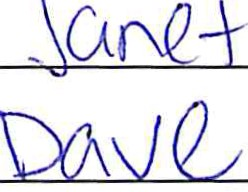 Janet
Dave